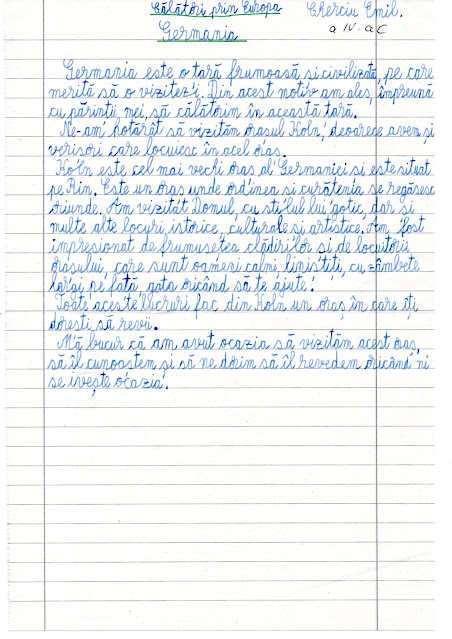 Călători prin Europa
Gherciu Emil.
a IV-a C
Germania
Germania este o țară frumoasă și civilizată, pe care
merită să o vizitezi. Din acest motiv am ales, împreună
cu părinții mei, să călătorim în această țară.
Ne-am hotărât să vizităm orașul Koln, deoarece avem și
verișori care locuiesc în acel oraș.
Koln este cel mai vechi oraș al Germaniei și este situat
pe Rin. Este un oraș unde ordinea și curățenia se regăsesc
oriunde. Am vizitat Domul, cu stilul lui gotic, dar și
multe alte locuri istorice, culturale și artistice. Am fost
impresionat de frumusețea clădirilor și de locuitorii
orașului, care sunt oameni calmi, liniștiți, cu zâmbete
largi pe față, gata oricând să te ajute!
Toate aceste lucruri fac din Koln un oraș în care îți
dorești să revii.
Mă bucur că am avut ocazia să vizităm acest oraș,
să îl cunoaștem și să ne dorim să îl revedem oricând ni
se ivește ocazia.